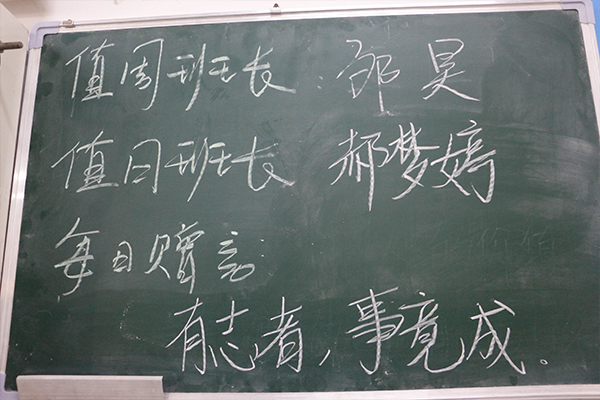 值周班长:邵昊
值日班长 郝梦婷
每日赠言:
有志者,事竟成。